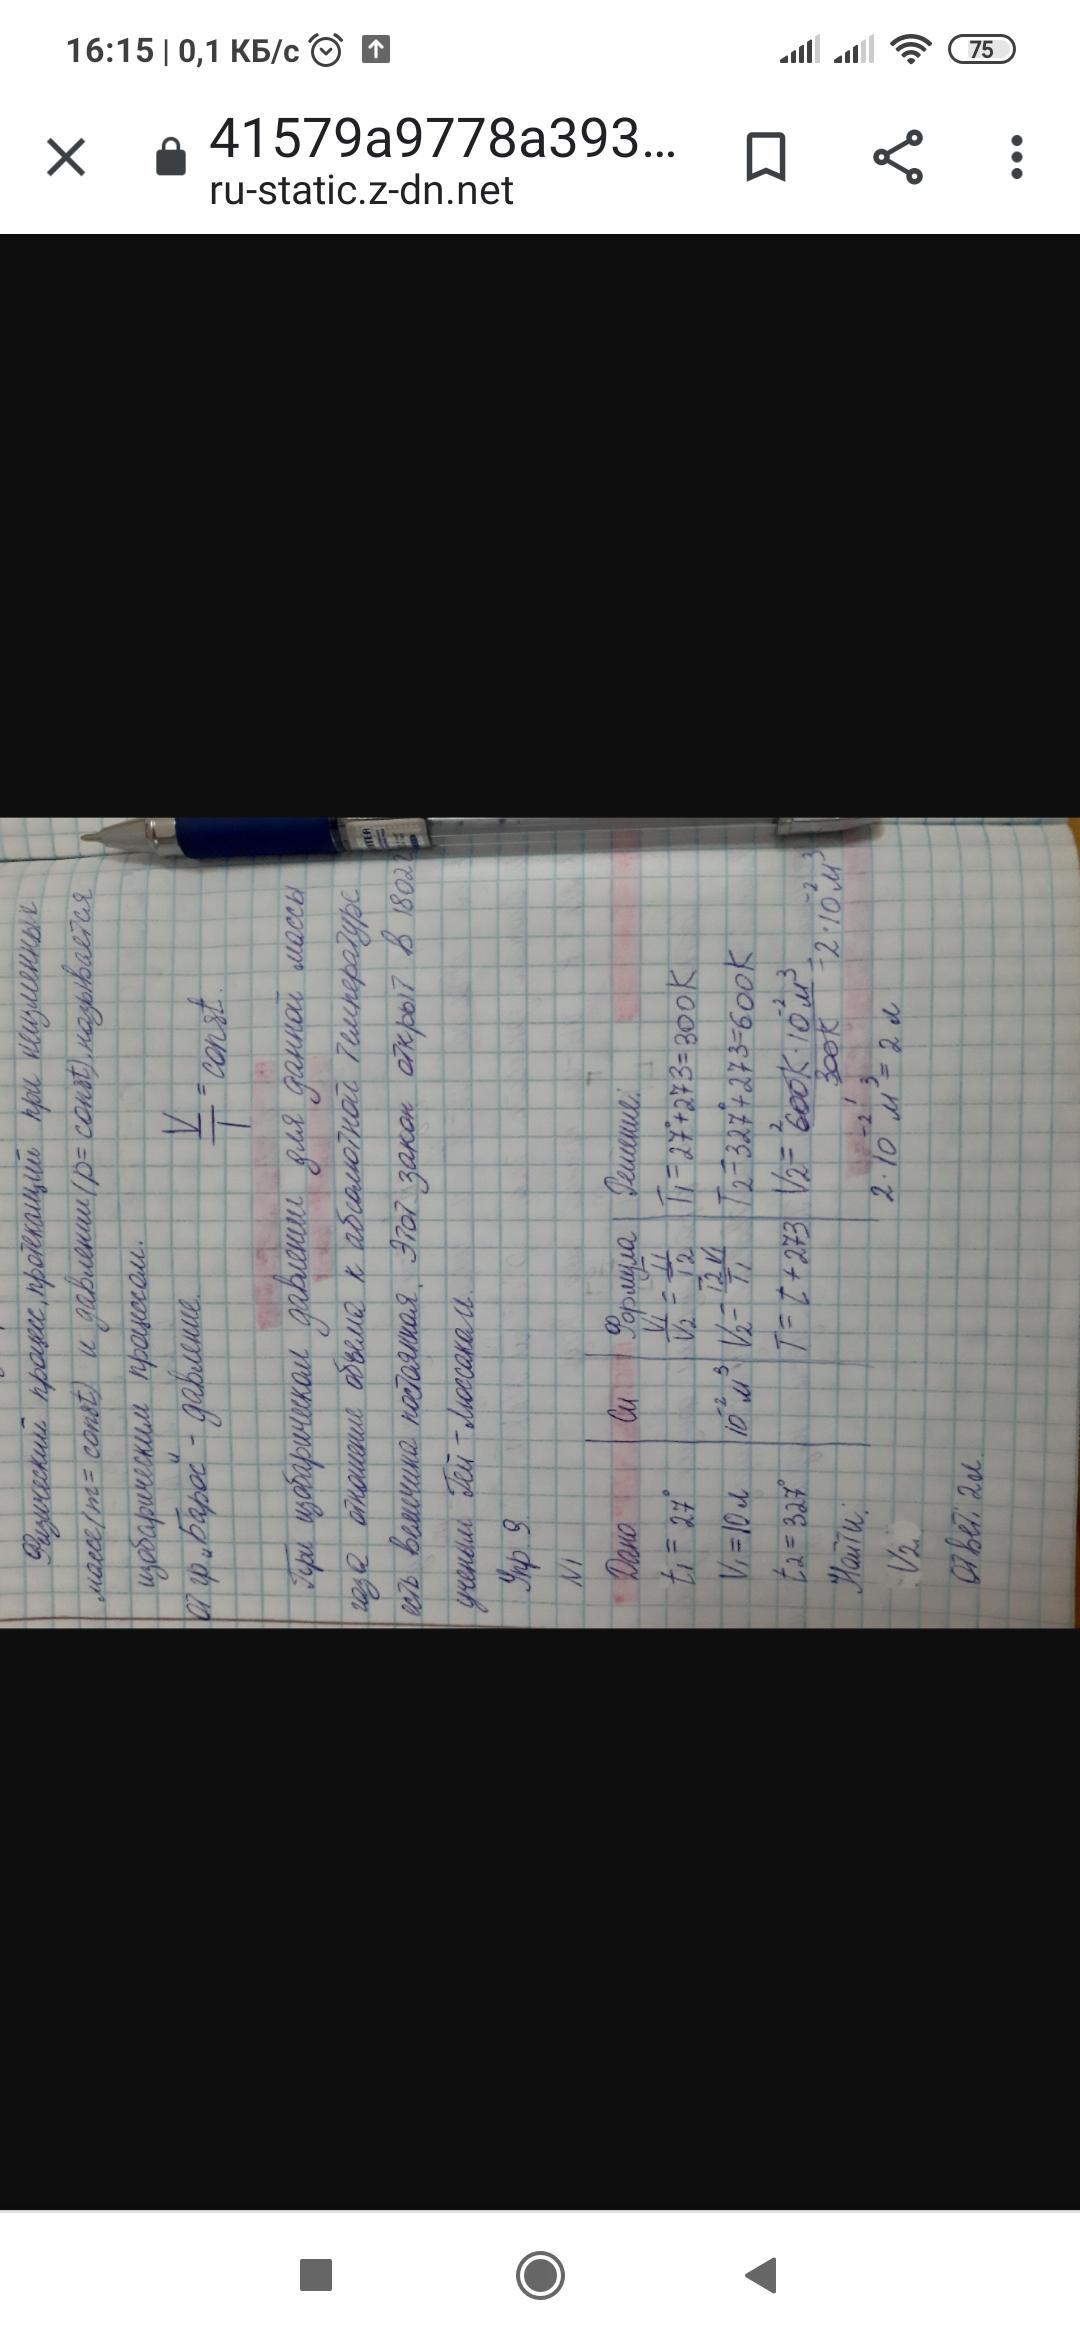 16:15 | 0,1 КБ/с
75
41579a9778a393...
ru-static.z-dn.net
Физический процес, протекающий при неизменных
массе (m = const) и давлении (p = const), называется
изобарическим процессом.
от гр „Барос" - давление.
V/T = const.
При изобарическом давлении для данной массы
газа отношение объёма к абсолютной температуре
есть величина постоянная. Этот закон открыт в 1802г
учёным Гей-Люссаком.
Упр 9
N1
Дано Си Формула Решение:
t1 = 27° V1/V2 = T1/T2 T1 = 27° + 273 = 300K
V1 = 10 л 10⁻² м³ V2 = T2 V1/T1 T2 = 327° + 273 = 600K
t2 = 327° T = t + 273 V2 = 600K · 10⁻² м³/300K = 2 · 10⁻² м³
Найти: 2 · 10⁻² м³ = 2 л
V2
Ответ: 2л.